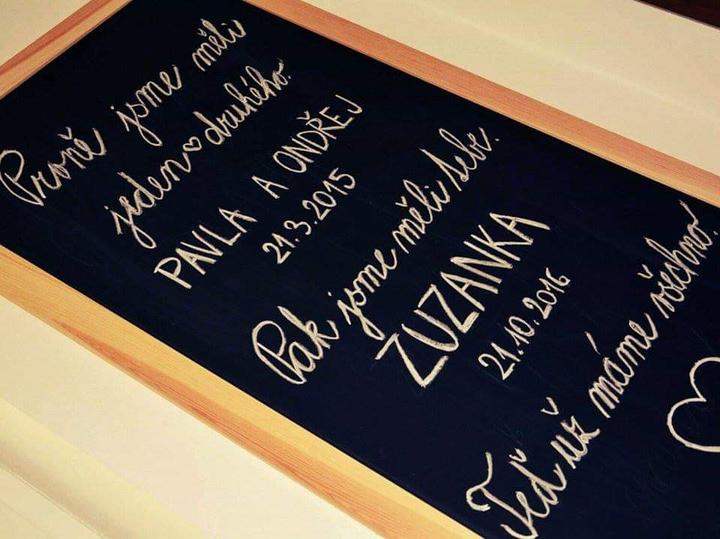 Prvně jsme měli
jeden druhého.
PAVLA A ONDŘEJ
21.3.2015
Pak jsme měli Tebe.
ZUZANKA
21.10.2016
Teď už máme všechno.